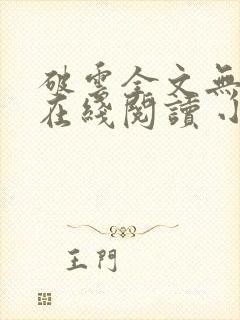 破雲全文無
在綫閱讀 小
王門